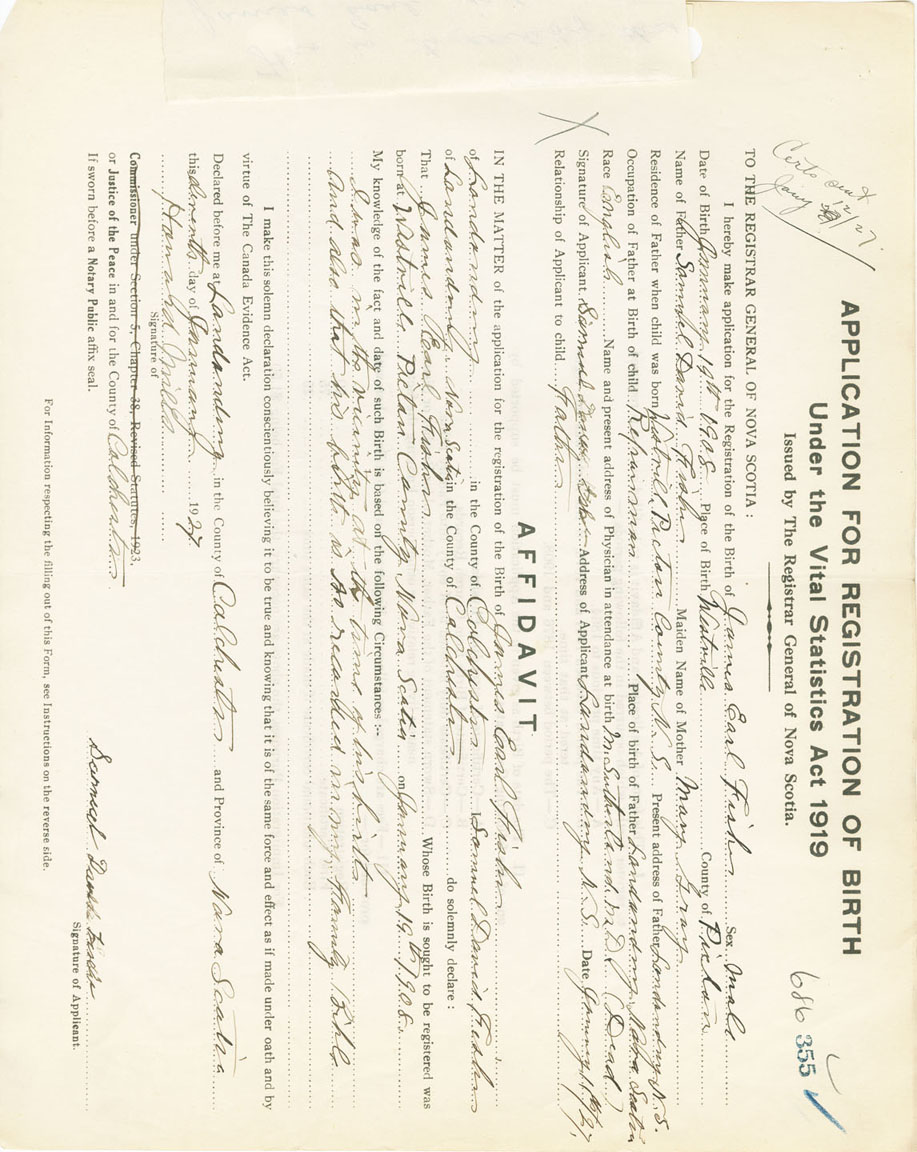 Certs sent
Jany 12/27
APPLICATION FOR REGISTRATION OF BIRTH
686 355
Under the Vital Statistics Act 1919
Issued by The Registrar General of Nova Scotia.
TO THE REGISTRAR GENERAL OF NOVA SCOTIA :
I hereby make application for the Registration of the Birth of James Earl Fisher Sex Male
Date of Birth January 19th 1908 Place of Birth Westville County of Pictou
Name of Father Samuel David Fisher Maiden Name of Mother Mary Gray
Residence of Father when child was born Westville Pictou County N.S. Present address of Father Londonderry N.S.
Occupation of Father at Birth of child Place of birth of Father Londonderry Nova Scotia
Race English Name and present address of Physician in attendance at birth M. Sutherland M.D. (Dead)
Signature of Applicant Samuel David Fisher Address of Applicant Londonderry N.S. Date Jany 27
Relationship of Applicant to child Father
AFFIDAVIT
IN THE MATTER of the application for the registration of the Birth of James Earl Fisher
of Londonderry in the County of Colchester I Samuel David Fisher
of Londonderry Nova Scotia in the County of Colchester do solemnly declare :
That James Earl Fisher Whose Birth is sought to be registered was
born at Westville Pictou County Nova Scotia on January 19th 1908.
My knowledge of the fact and date of such Birth is based on the following Circumstances :-
I was in the vicinity at the time of his birth
and also that his birth is so recorded in my Family Bible
I make this solemn declaration conscientiously believing it to be true and knowing that it is of the same force and effect as if made under oath and by
virtue of The Canada Evidence Act.
Declared before me at Londonderry in the County of Colchester and Province of Nova Scotia
this day of January 1927.
Signature of
Commissioner under Section 5, Chapter 38, Revised Statutes, 1923.
or Justice of the Peace in and for the County of Colchester
If sworn before a Notary Public affix seal.
Samuel David Fisher
Signature of Applicant.
For Information respecting the filling out of this Form, see Instructions on the reverse side.